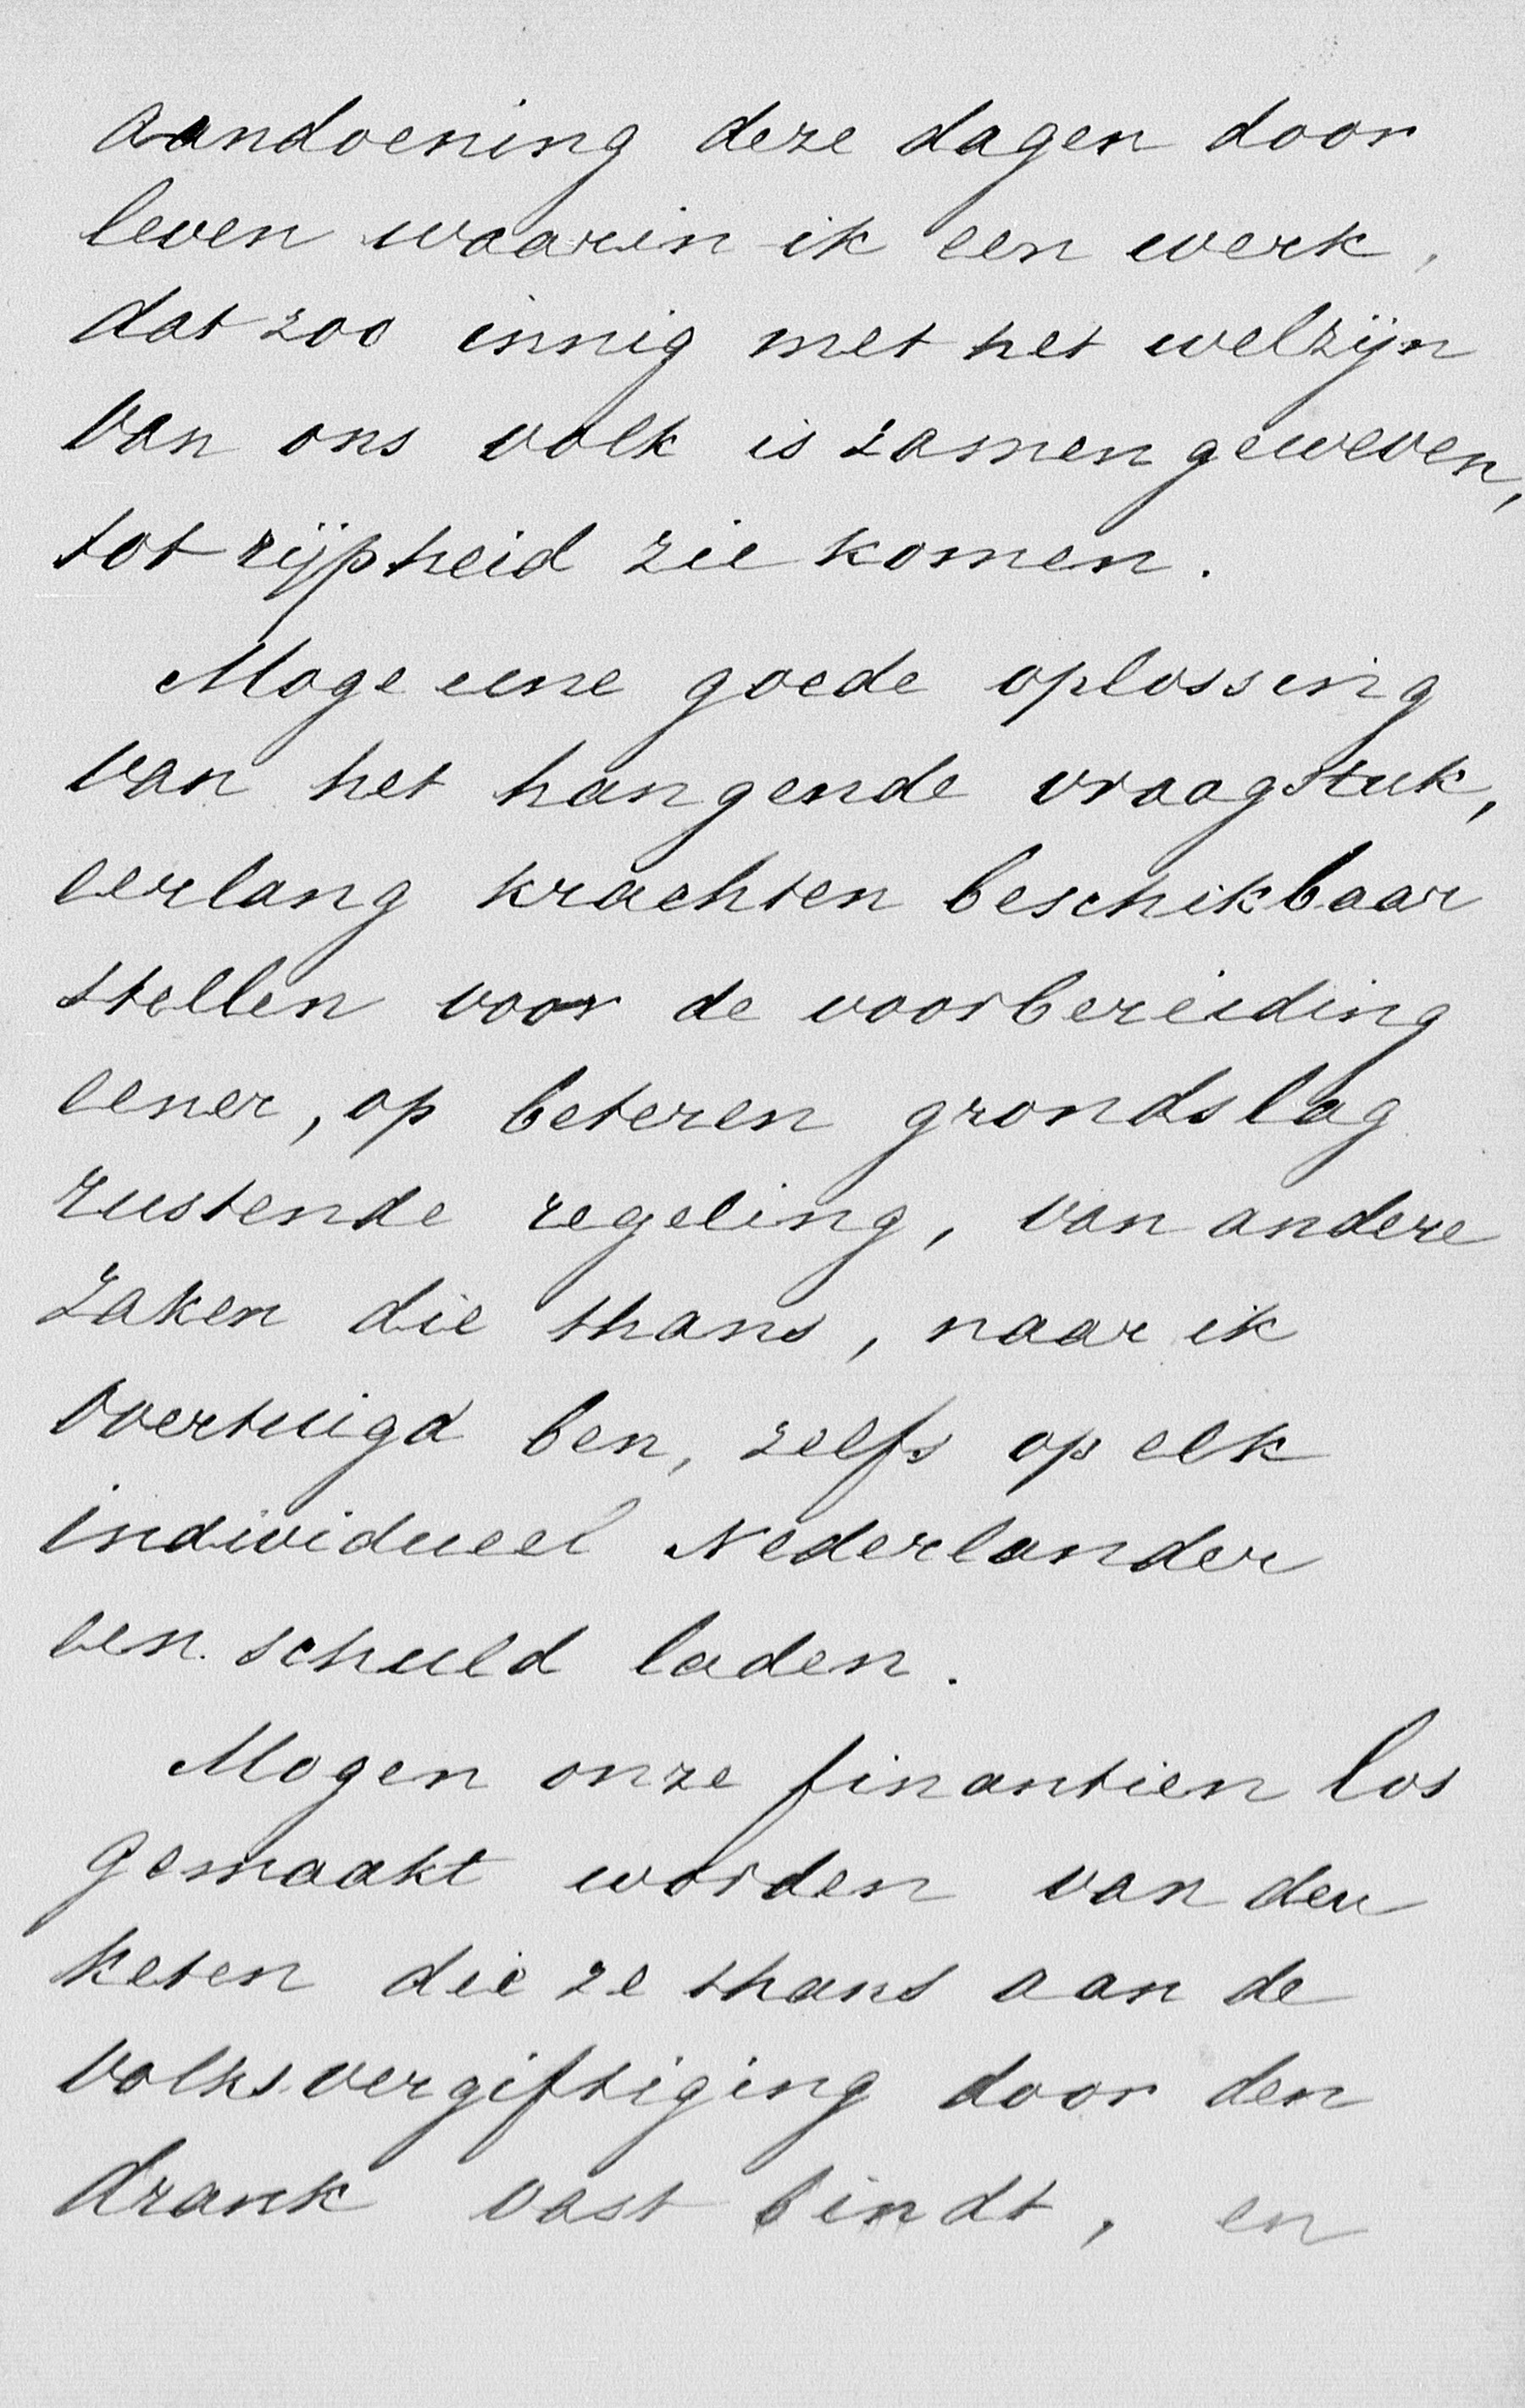 aandoening deze dagen door
leven waarin ik een werk,
dat zoo innig met het welzijn
van ons volk is zamen geweven,
tot rijpheid zie komen.
Moge eene goede oplossing
van het hangende vraagstuk,
eerlang krachten beschikbaar
stellen voor de voorbereiding
eener, op beteren grondslag
rustende regeling, van andere
zaken die thans, naar ik
overtuigd ben, zelfs op elk
individueel Nederlander
een schuld laden.
Mogen onze finantien los
gemaakt worden van den
keten die ze thans aan de
volksvergiftiging door den
drank vast bindt, en